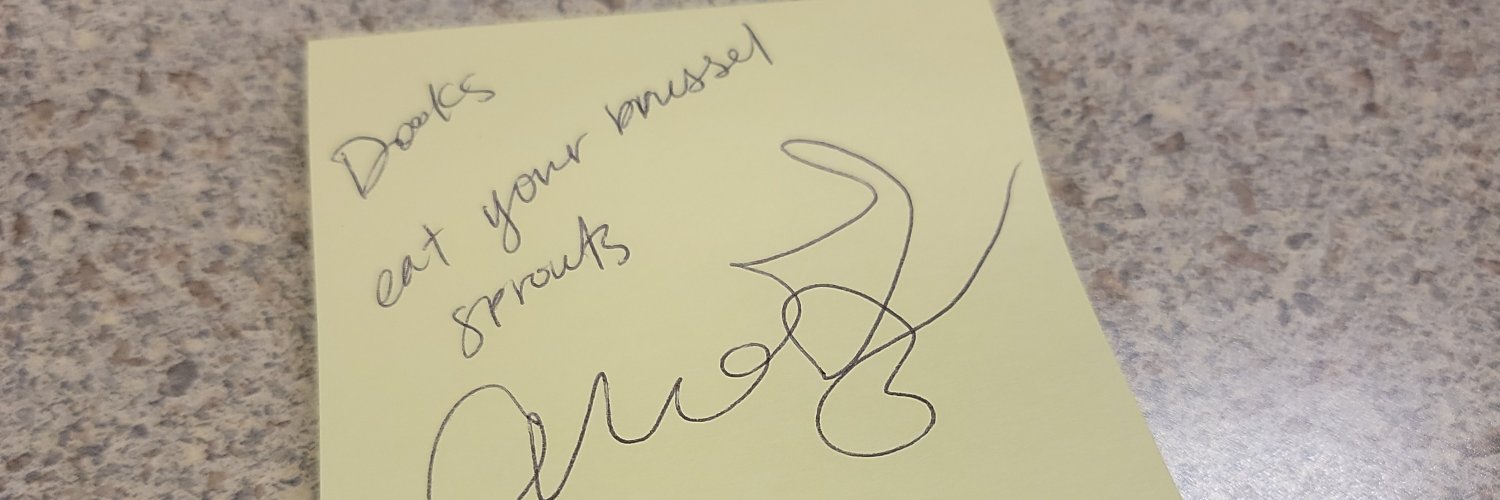 Dooks
eat your brussel
sprouts